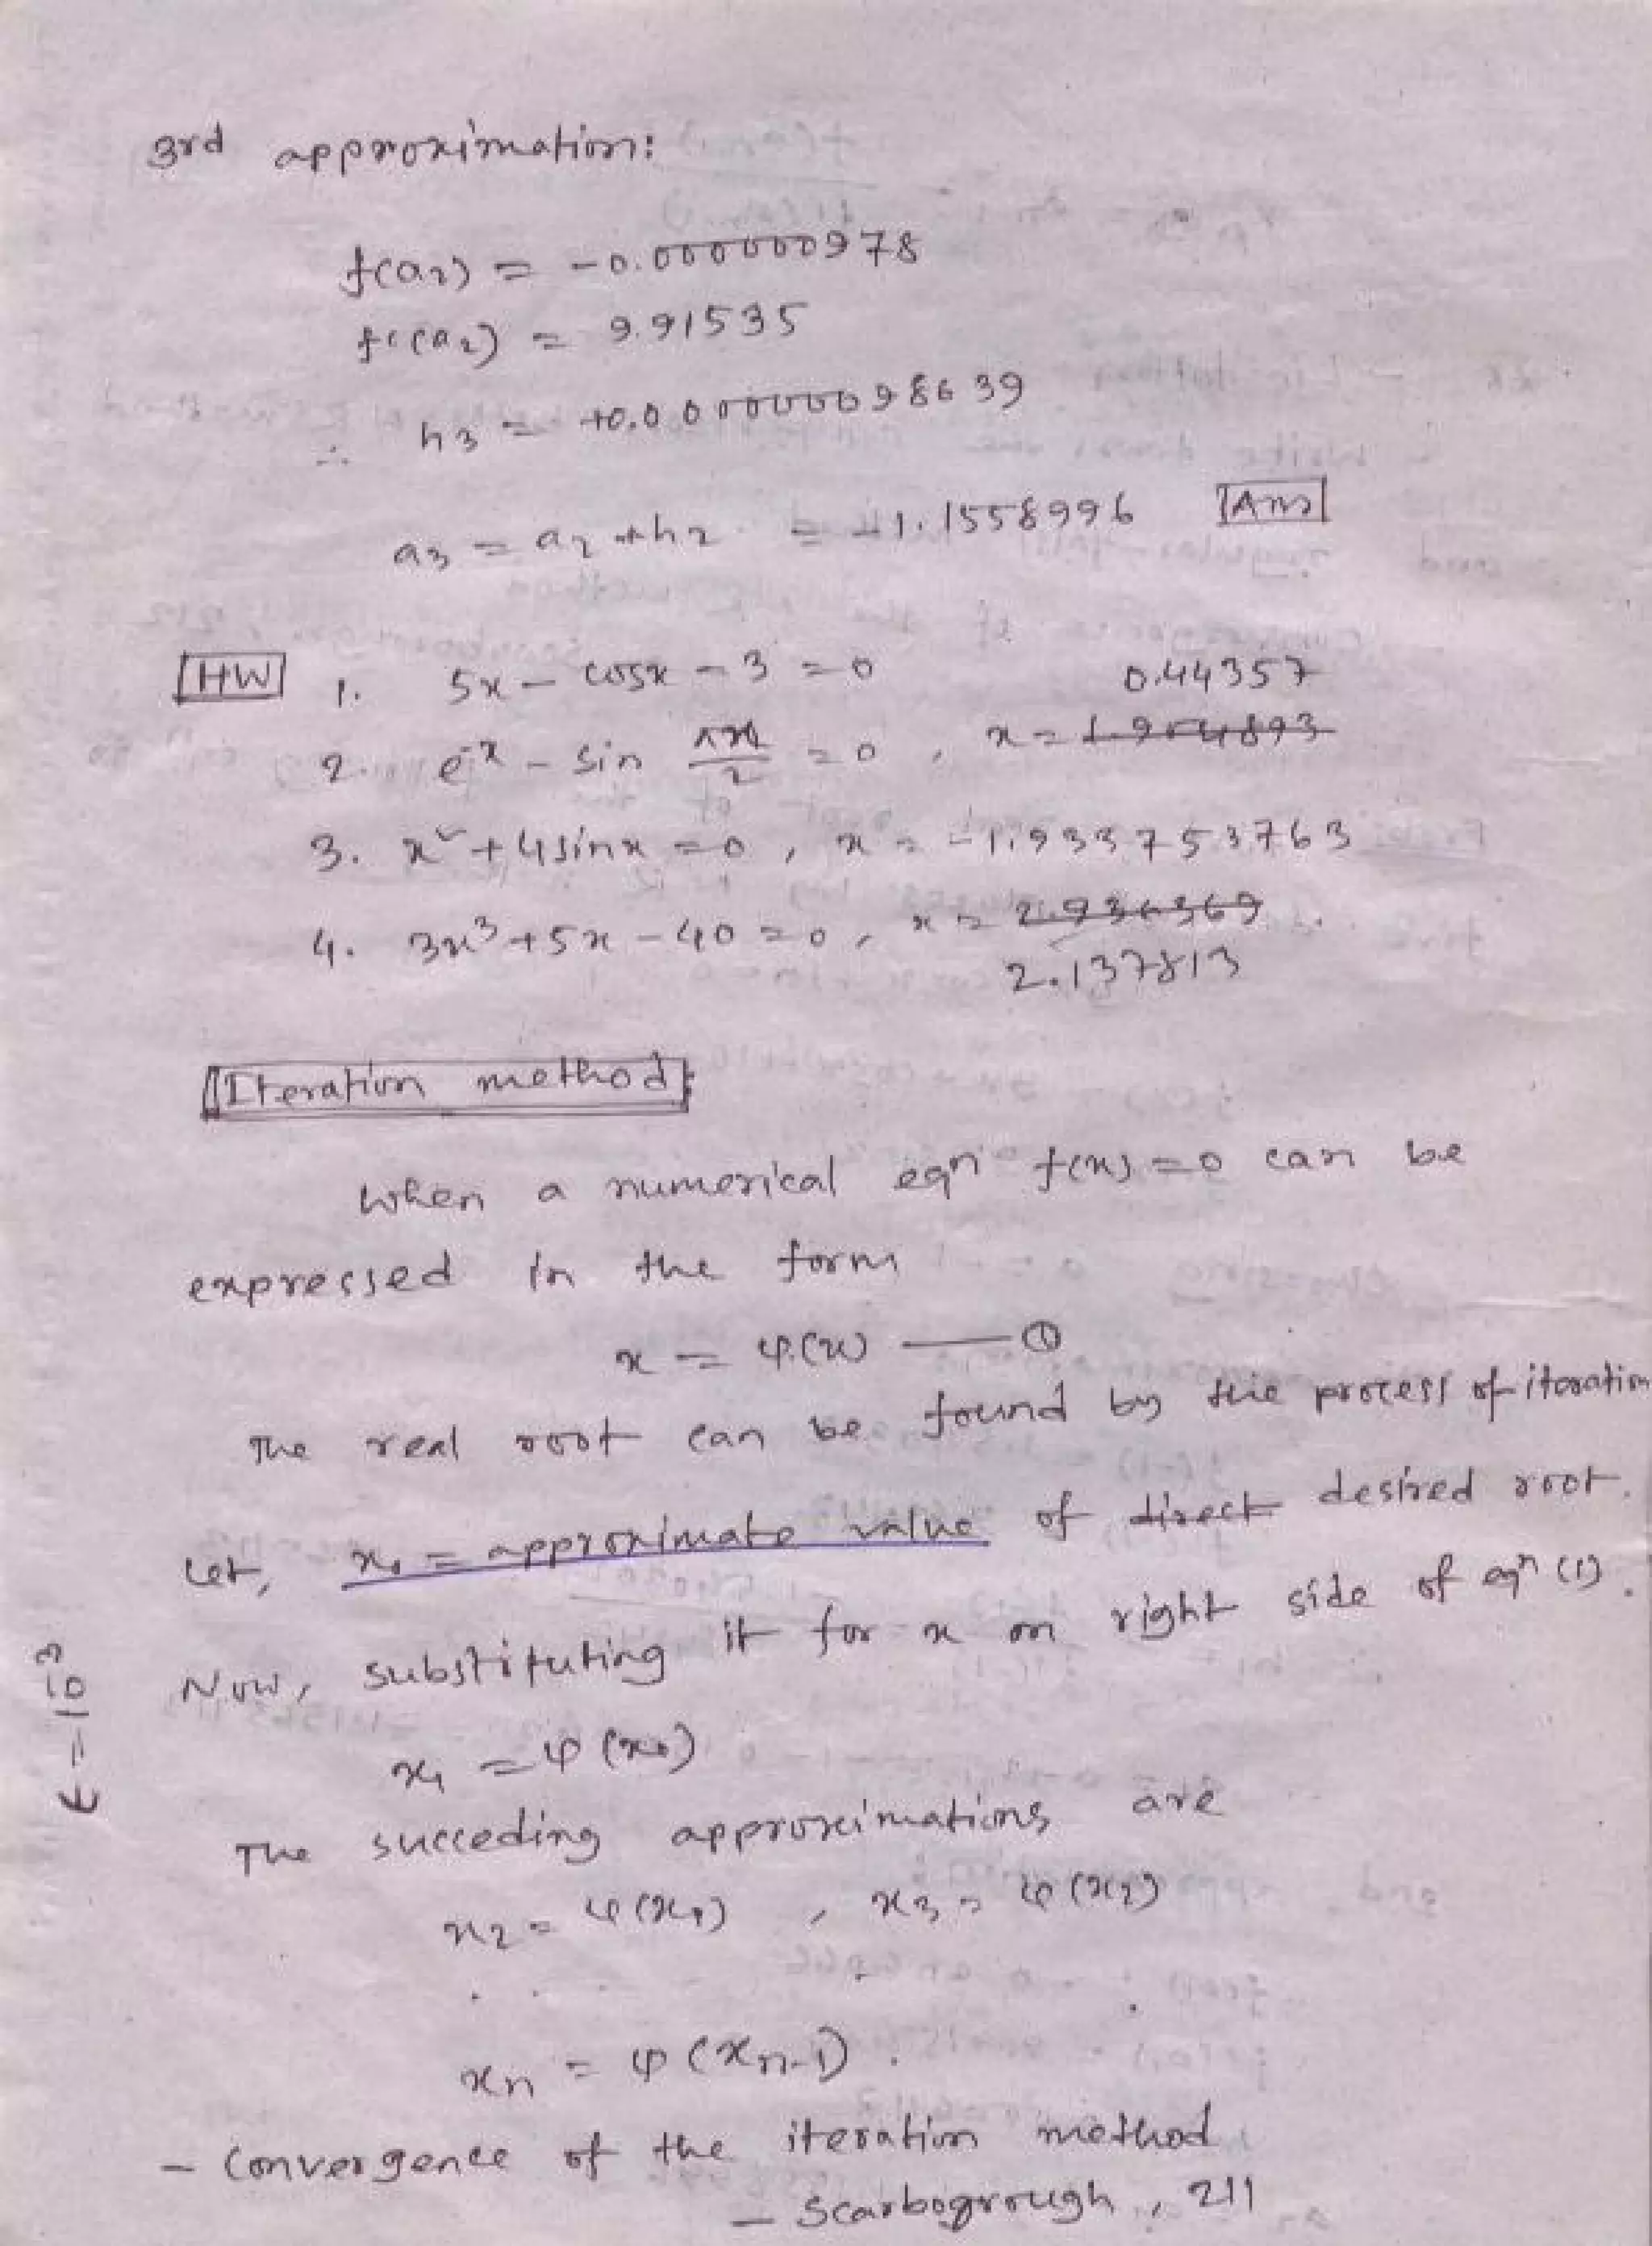 3rd approximation:
f(a₂) = -0.000000978
f'(a₂) = 9.91535
∴ h₃ = +0.000000098639
a₃ = a₂ + h₂ = -1.1558996 Ans
HW 1. 5x - cosx - 3 = 0
0.44357
2. e⁻ˣ - sin πx/2 = 0, x = 1.954893
3. x² + 4sinx = 0, x = -1.933753763
4. 3x³ + 5x - 40 = 0, x = 2.936369
2.137813
Iteration method:
When a numerical eqn f(x) = 0 can be
expressed in the form
x = φ(x) — ①
The real root can be found by the process of iteration
Let, x₀ = approximate value of direct desired root.
Now, substituting it for x on right side of eqn (1).
ε = 10⁻³
x₁ = φ(x₀)
The succeding approximations are
x₂ = φ(x₁), x₃ = φ(x₂)
. . . . .
xₙ = φ(xₙ₋₁).
- Convergence of the iteration method
- Scarbogrough, 211